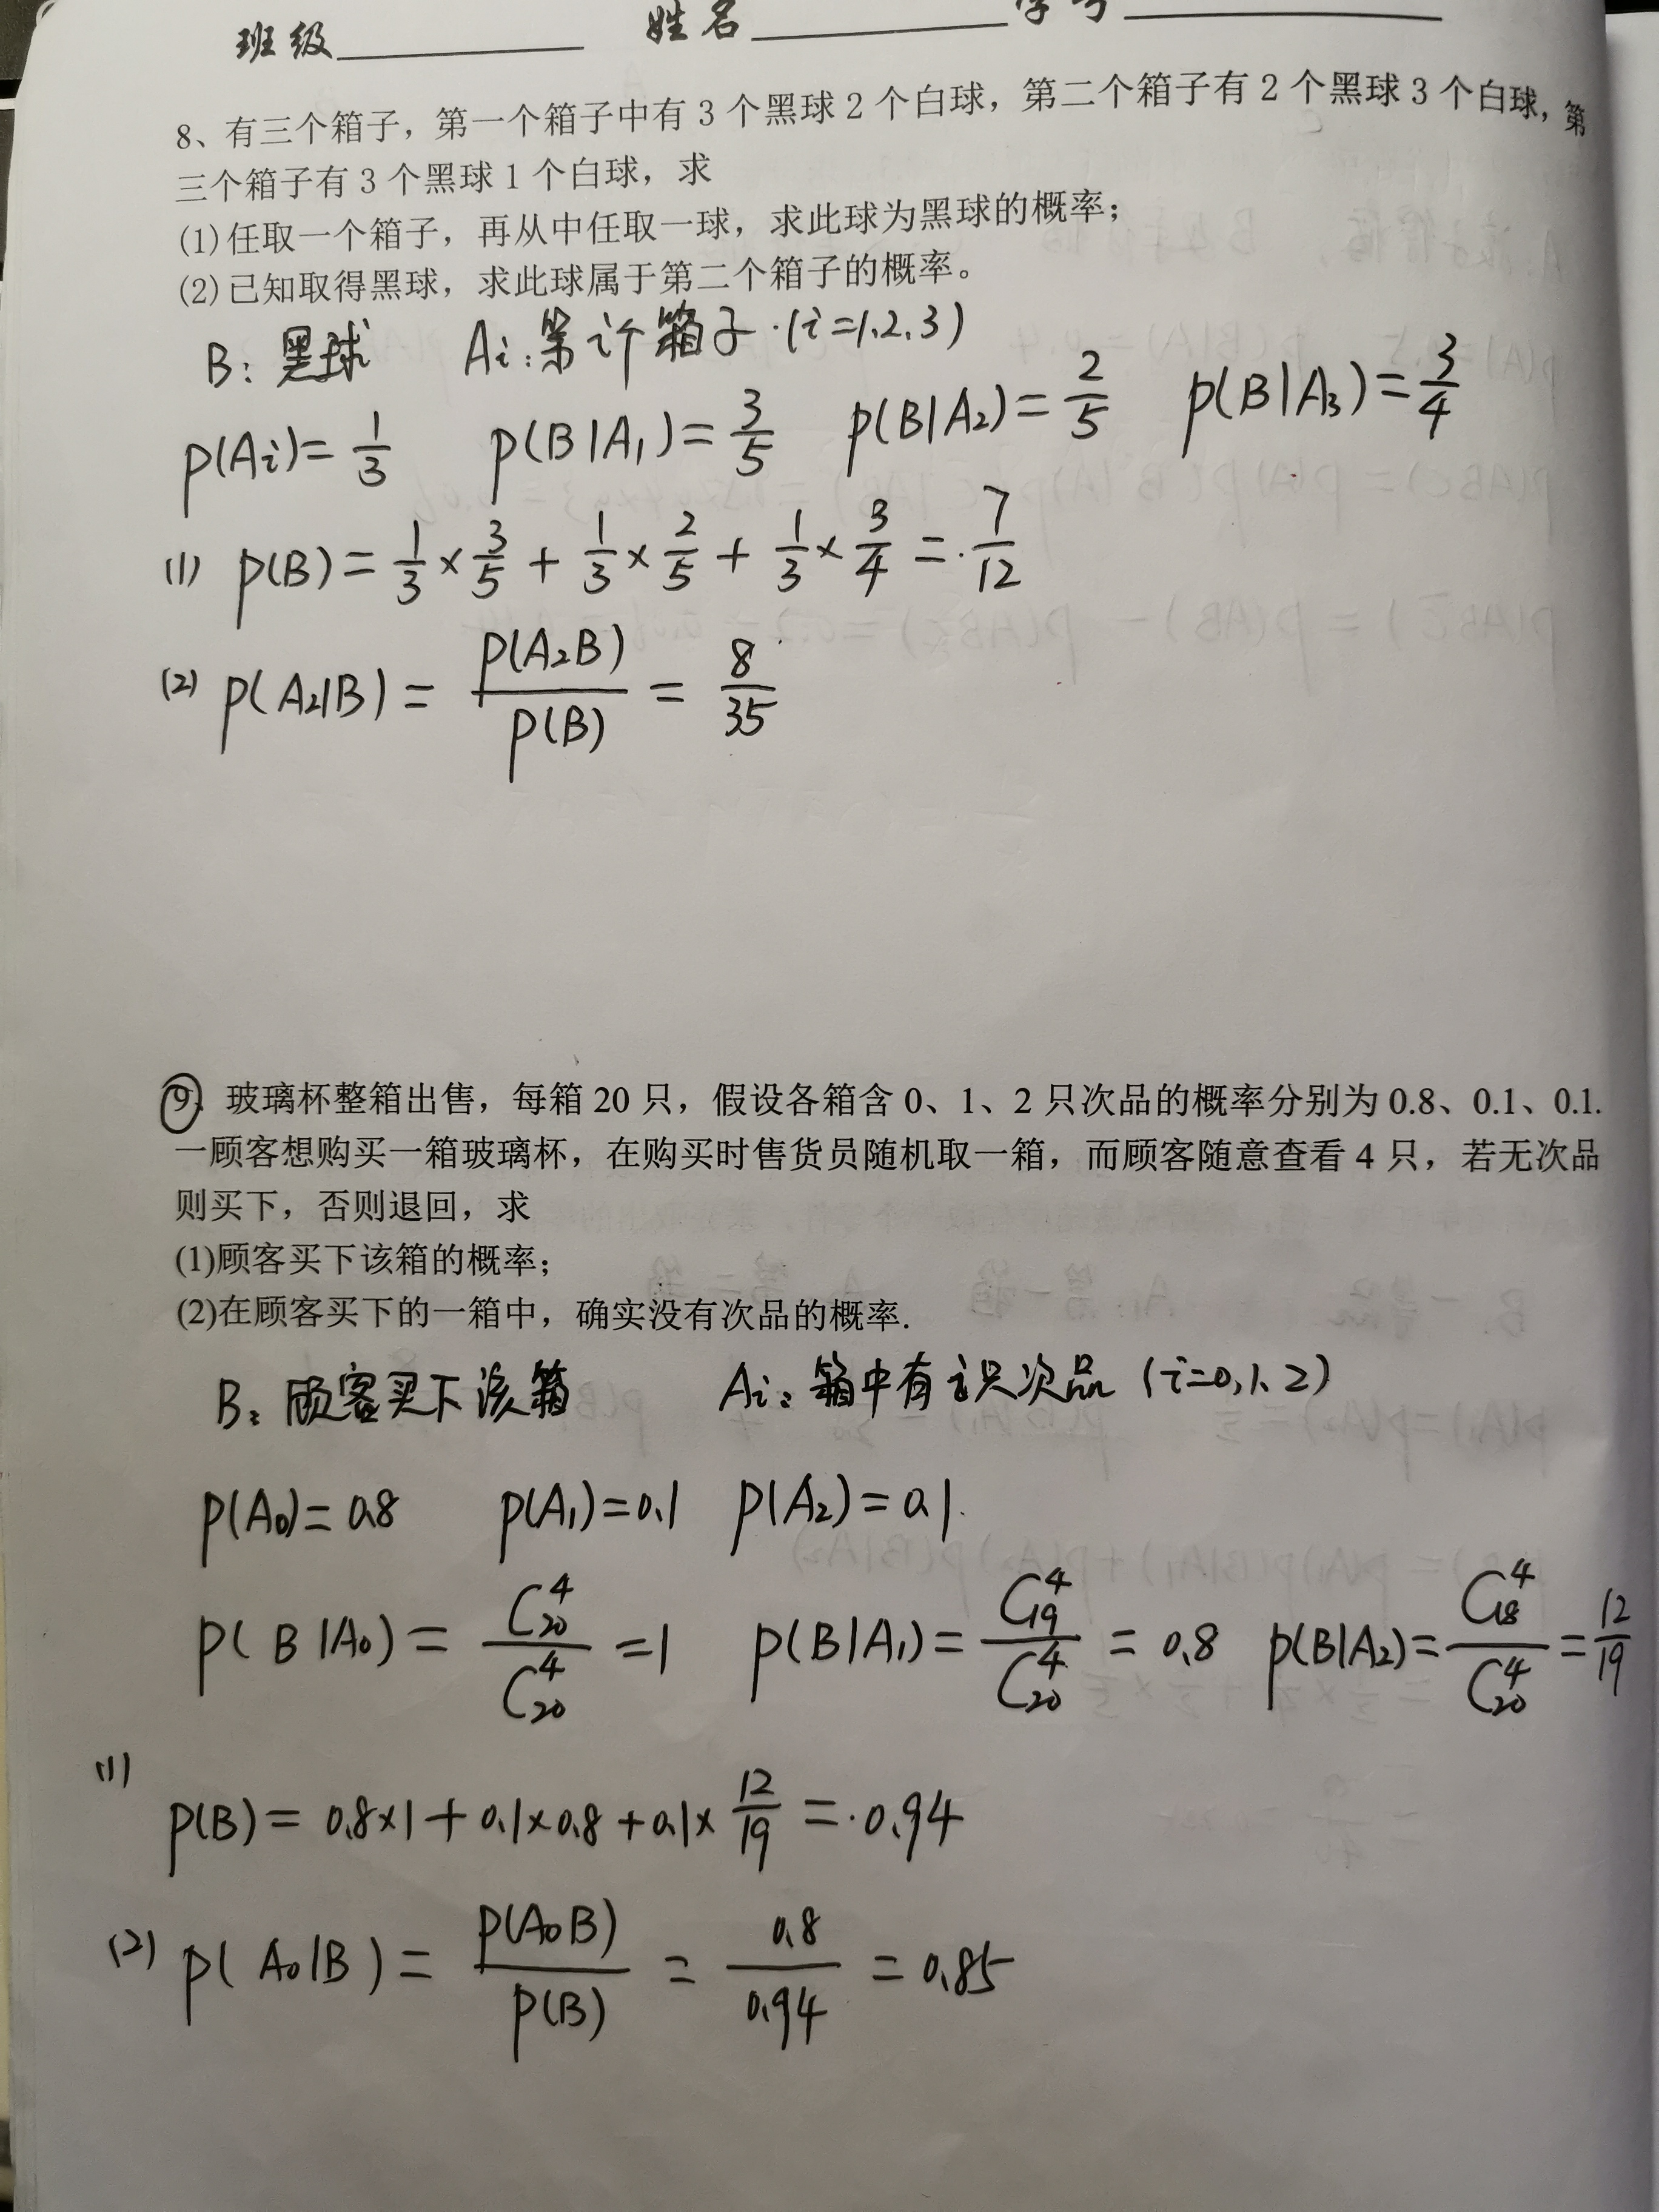 班级 姓名 学号
8、有三个箱子，第一个箱子中有 3 个黑球 2 个白球，第二个箱子有 2 个黑球 3 个白球，第
三个箱子有 3 个黑球 1 个白球，求
(1)任取一个箱子，再从中任取一球，求此球为黑球的概率；
(2)已知取得黑球，求此球属于第二个箱子的概率。
B：黑球 Ai：第i个箱子·(i=1,2,3)
p(Ai)=1/3 p(B|A₁)=3/5 p(B|A₂)=2/5 p(B|A₃)=3/4
(1) p(B)=1/3×3/5+1/3×2/5+1/3×3/4=7/12
(2) p(A₂|B)=p(A₂B)/p(B)=8/35
9、玻璃杯整箱出售，每箱 20 只，假设各箱含 0、1、2 只次品的概率分别为 0.8、0.1、0.1.
一顾客想购买一箱玻璃杯，在购买时售货员随机取一箱，而顾客随意查看 4 只，若无次品
则买下，否则退回，求
(1)顾客买下该箱的概率；
(2)在顾客买下的一箱中，确实没有次品的概率.
B：顾客买下该箱 Ai：箱中有i只次品 (i=0,1,2)
p(A₀)=0.8 p(A₁)=0.1 p(A₂)=0.1
p(B|A₀)=C₂₀⁴/C₂₀⁴=1 p(B|A₁)=C₁₉⁴/C₂₀⁴=0.8 p(B|A₂)=C₁₈⁴/C₂₀⁴=12/19
(1)
p(B)=0.8×1+0.1×0.8+0.1×12/19=0.94
(2) p(A₀|B)=p(A₀B)/p(B)=0.8/0.94=0.85